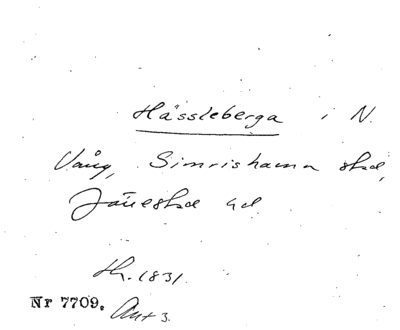 Hässleberga i N.
Vång, Simrishamn stad,
Järrestad hd
Th. 1831.
Nr 7709. Ant 3.